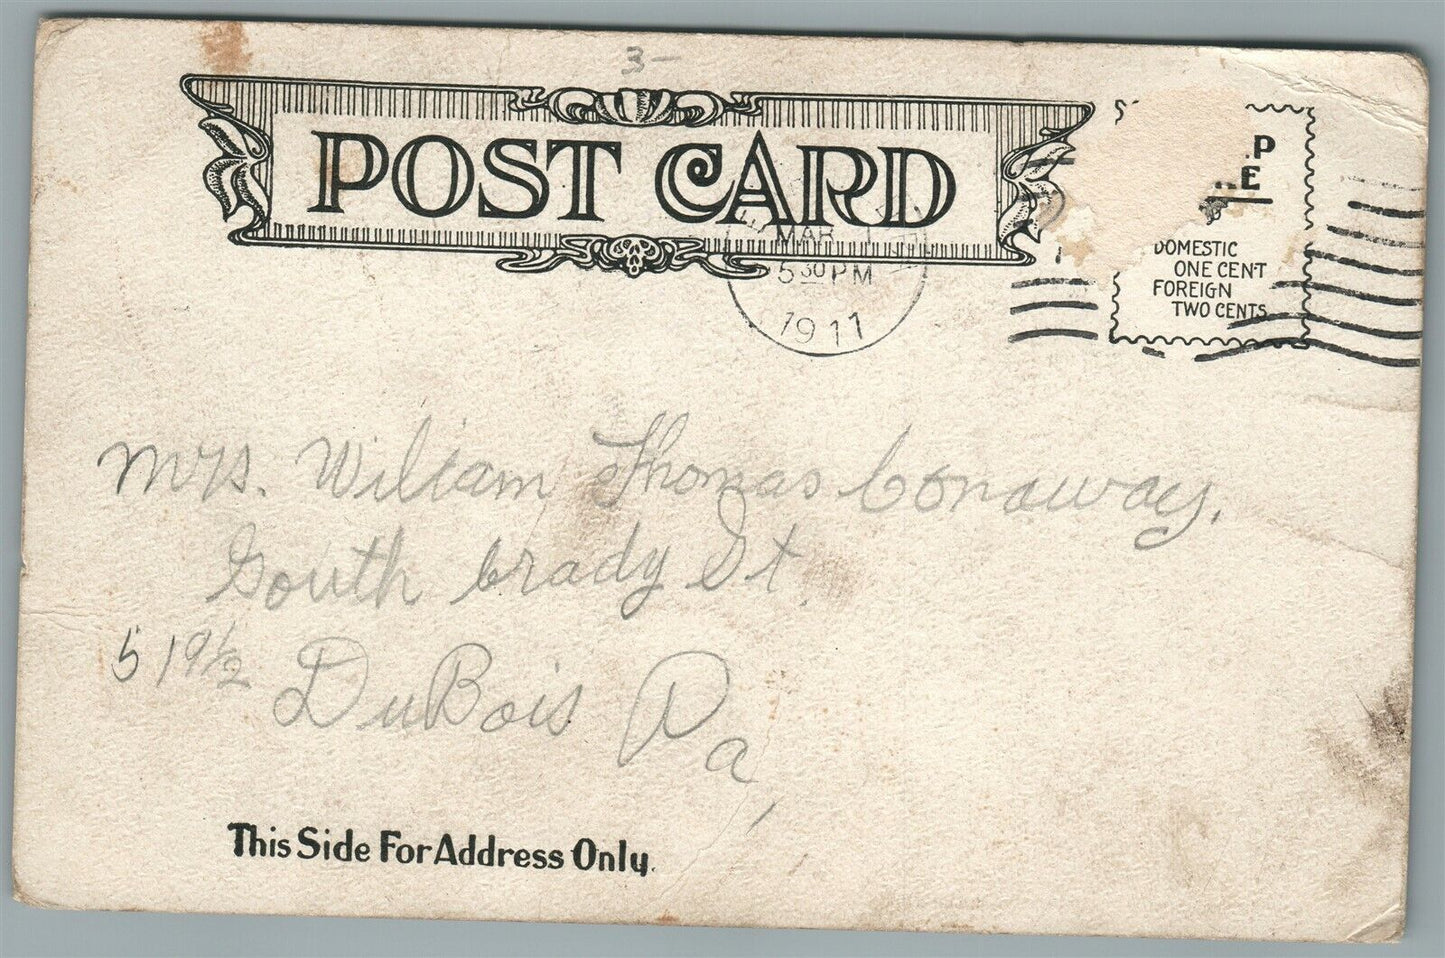 3-
POST CARD
MAR
5 30 PM
1911
DOMESTIC
ONE CENT
FOREIGN
TWO CENTS
Mrs. Wiliam Thomas Conaway,
South brady St.
519½ DuBois Pa,
This Side For Address Only.